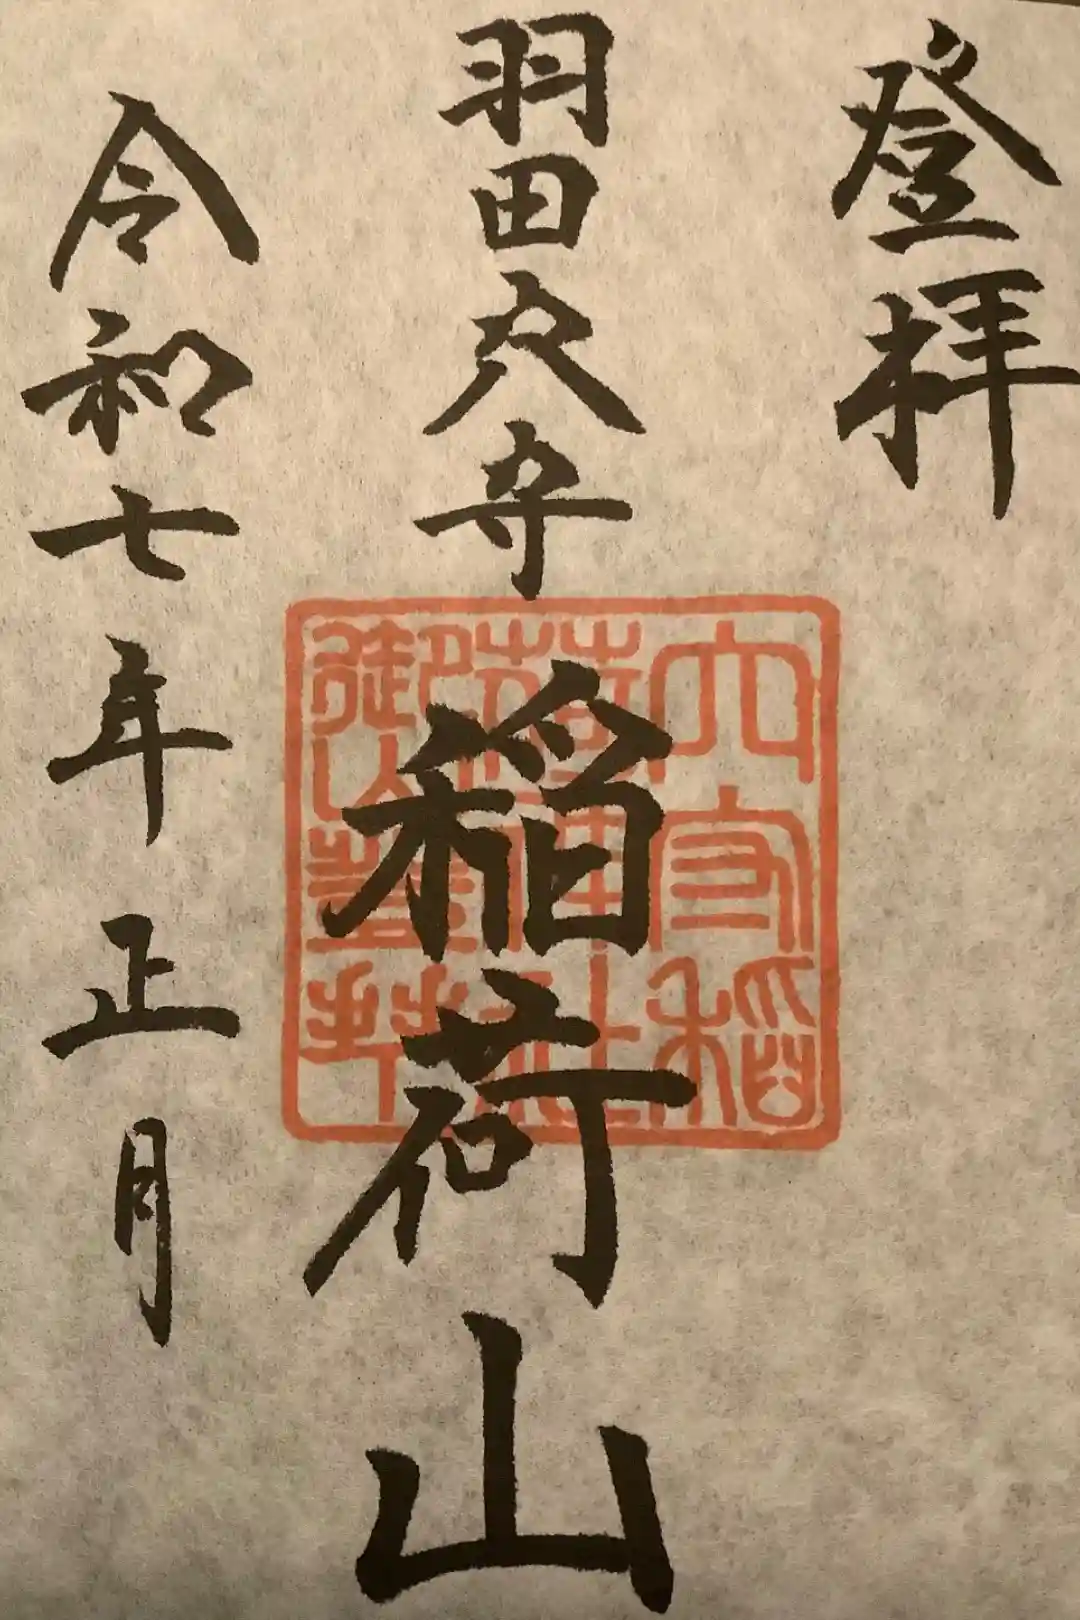 登拝
羽田穴守
稲荷山
令和七年正月
穴守稲
荷神社
御山登拝